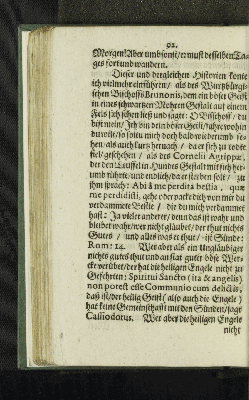 92.
Morgen! Aber umbsonst / er must desselben Ta-
ges fort und wandern.
Dieser und dergleichen Historien könte
ich viel mehr einführen / als des Würtzbürgi-
schen Bischoffs Brunonis, dem ein böser Geist
in eines schwartzen Mohren Gestalt auf einem
Fels sich sehen ließ und sagt: O Bischoff / du
bist mein / Ich bin dein böser Geist / fahre wohin
du wilt / so soltu mich doch bald wiederumb se-
hen. als auch kurtz hernach / da er sich zu todte
fiel / geschehen / als des Cornelii Agrippæ,
der den Teuffel in Hundes Gestalt mit sich her-
umb führte / und endlich / da er sterben solt / zu
ihm sprach: Abi â me perdita bestia, quæ
me perdidisti, gehe oder packe dich von mir du
verdammete Bestie / die du mich verdammet
hast: Ja vieler anderer / denn das ist wahr und
bleibet wahr / wer nicht gläubet / der thut nichts
Gutes / und alles was er thut / ist Sünde:
Rom: 14. Wer aber als ein Ungläubiger
nichts gutes thut und an stat guter böse Wer-
cke verübet / der hat die heiligen Engele nicht zu
Gefehrten: Spiritui Sancto (ita & angelis)
non potest esse Communio cum delictis,
daß ist / der heilig Geist / also auch die Engele /
hat keine Gemeinschafft mit den Sünden / sagt
Cassiodorus. Wer aber die heiligen Engele
nicht